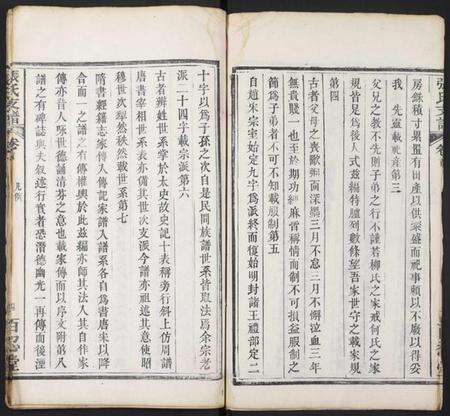 張氏支譜
房餘積寸累置有出產以供粢盛而祀事頗以不廢以得妥
我 先靈載祀產第三
父兄之教不先則子弟之行不謹若柳氏之家戒何氏之家
規皆足為後人式茲編特臚列數條望吾家世守之載家規
第四
古者父母之喪歠粥面深墨三月不怠三月不懈泣血三年
無貴賤一也至於期功緦麻皆稱情而制不可損益服制之
篇為子弟者不可不知載服制第五
自趙宋宗室始定九字為派終而復始明封諸王禮部定二
十字以為子孫之次自是民間族譜世系皆取法焉余宗老
派二十四字載宗派第六
古者辨姓世系掌於太史故史記十表稱旁行斜上仿周譜
唐書宰相世系表亦備其世次支派今譜亦祖述其意使昭
穆世次犂然秩然載世系第七
隋書經籍志家傳入傳記家譜入譜系各自為書唐宋以降
合而一之譜之有傳權輿於此茲編亦師其法入其自作家
傳亦昔人詠世德誦清芬之意也載家傳而以序文附第八
譜之有碑誌與夫敘述行實者恐潛德幽光一再傳而後湮
張氏支譜 卷首 凡例 四 百忍堂